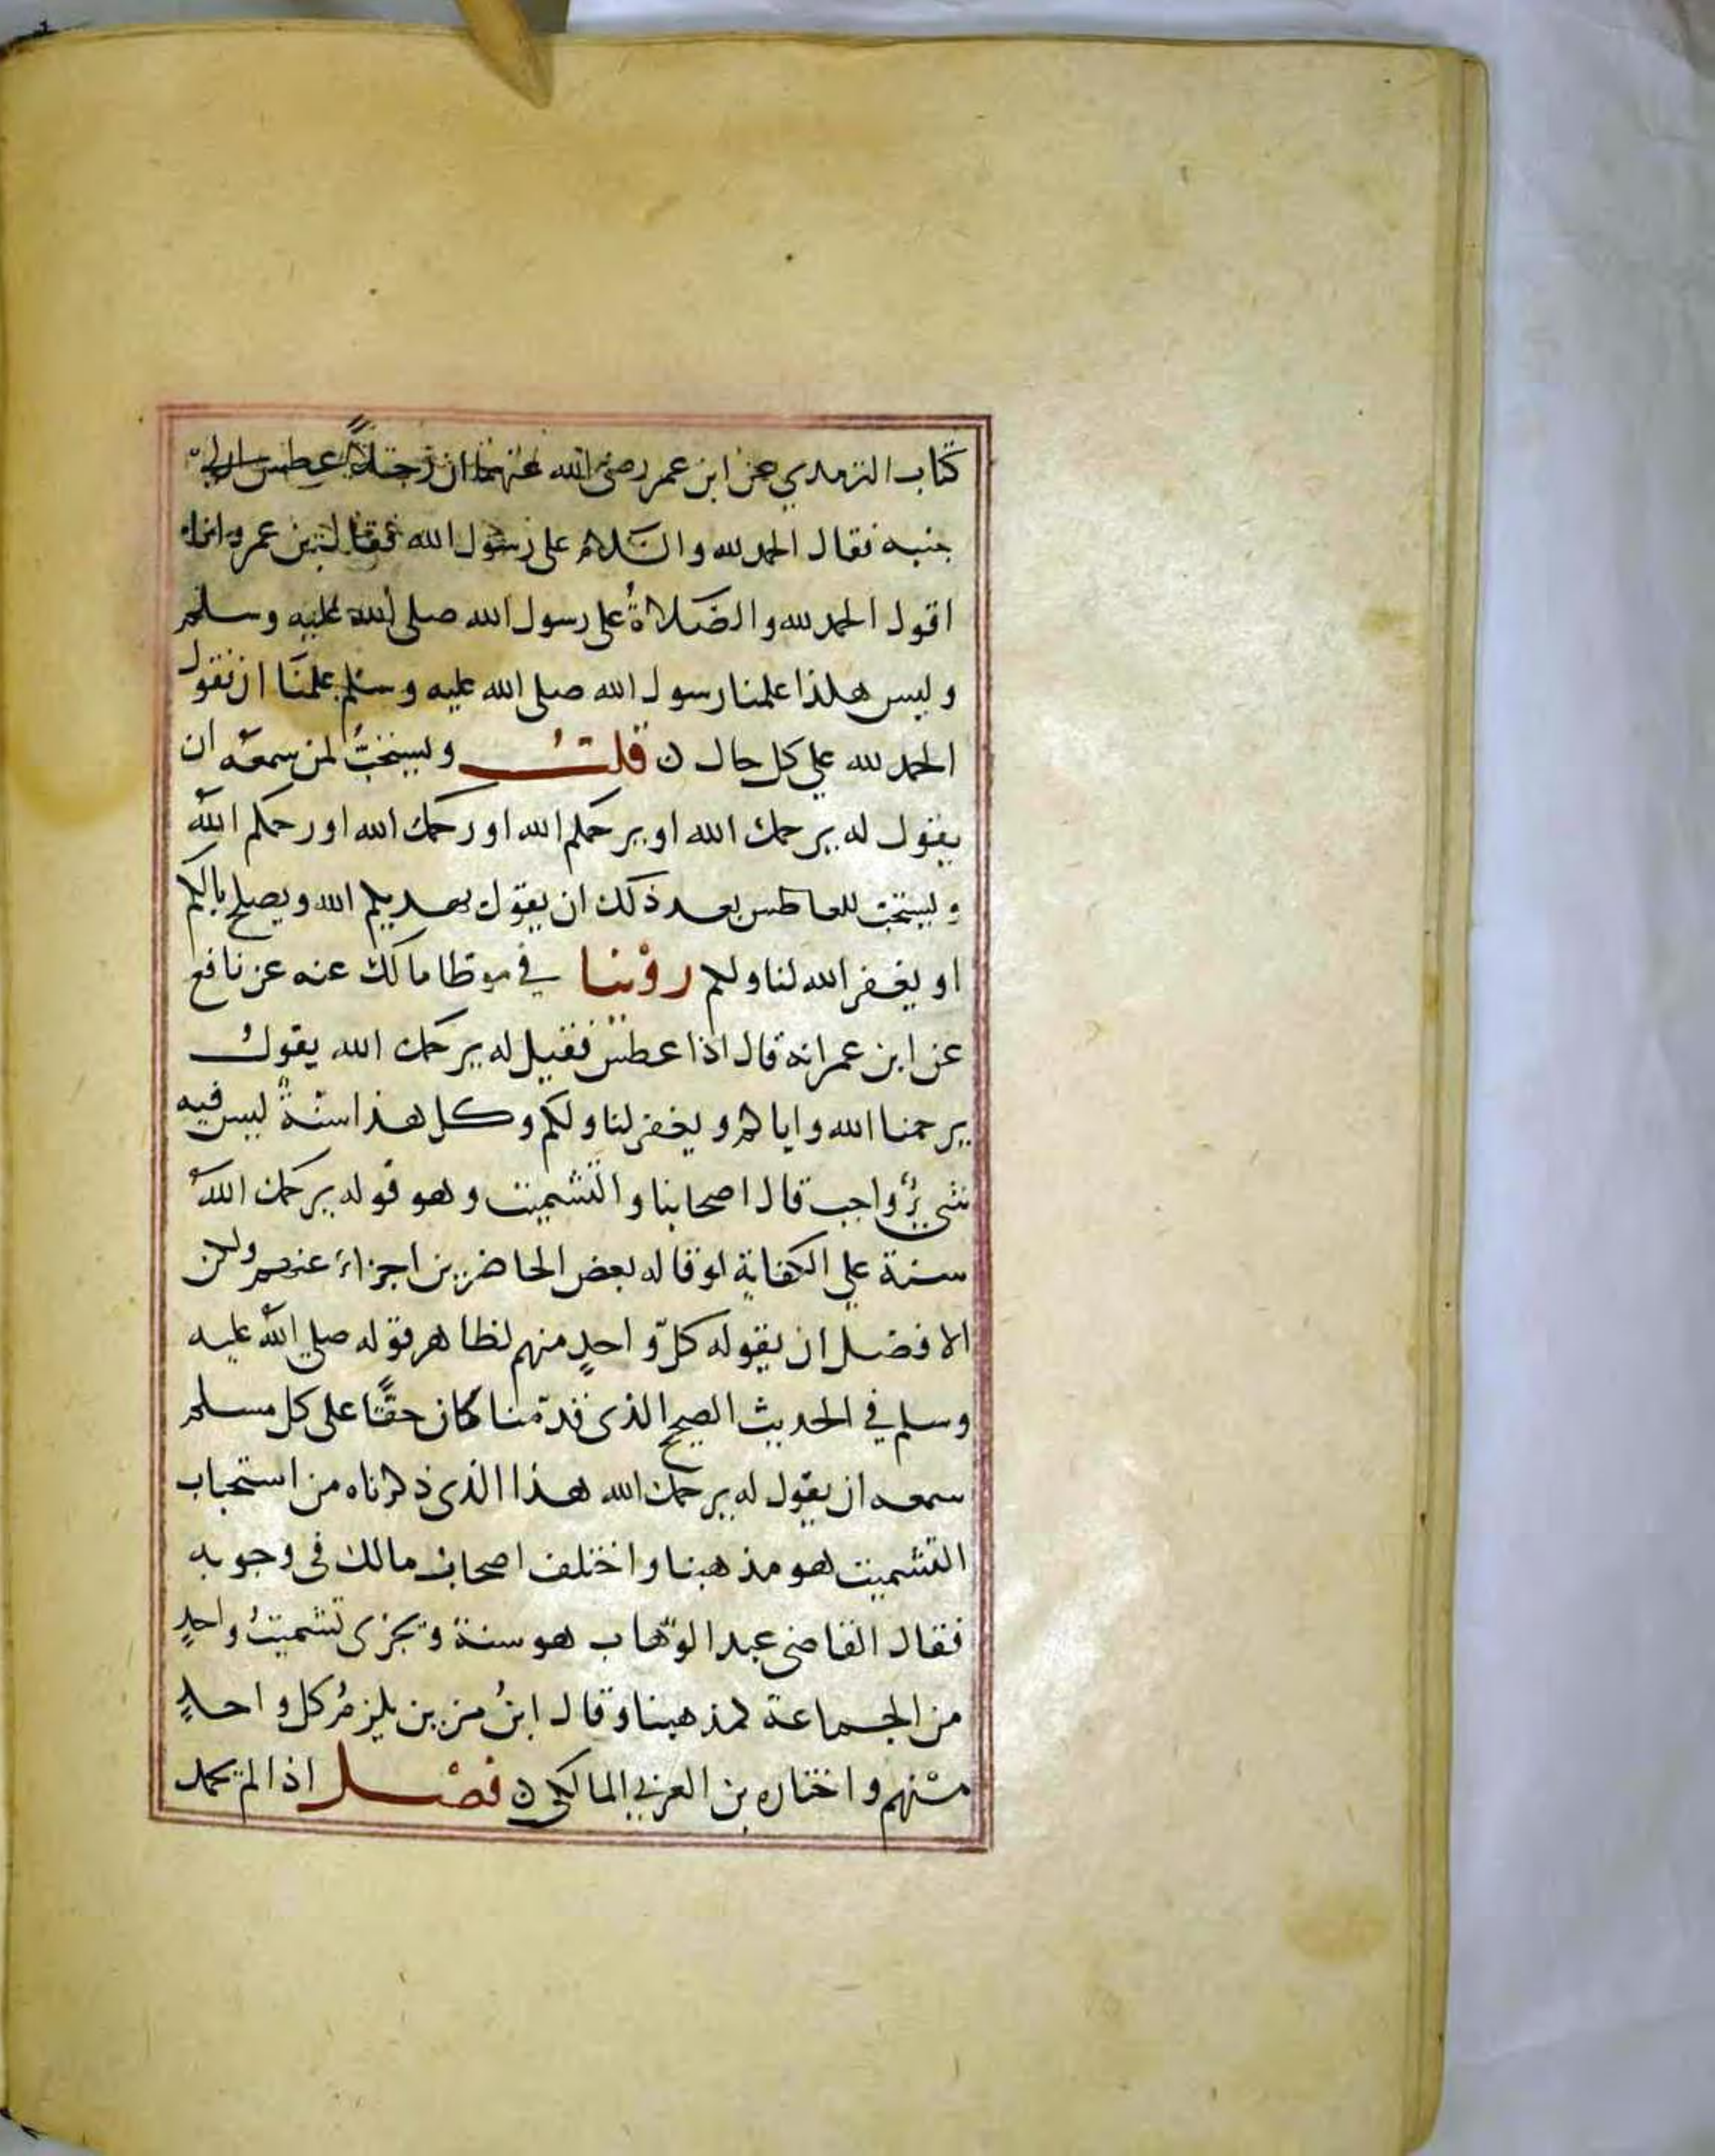 كتاب الترمدي عن ابن عمر رضي الله عنهما ان رجلاً عطس الى
جنبه فقال الحمد لله والسَّلام على رسُول الله فقال بن عمر وانا
اقول الحمد لله والصَّلاةُ على رسول الله صلى الله عليه وسلم
وليس هكذا علمنا رسول الله صلى الله عليه وسلم علمنَا ان نقول
الحمد لله علي كل حال ن قلتُ ويستحبُّ لمن سمعَه ان
يقول له يرحمك الله او يرحمكم الله او رحمك الله او رحمكم اللهُ
ويستحبّ للعاطس بعد ذلك ان يقول يهديكم الله ويصلح بالكم
او يغفر الله لنا ولكم روْينا في موطا مالك عنه عن نافع
عن ابن عمر انه قال اذا عطس فقيل له يرحمك الله يقولُ
يرحمنا الله واياكم ويغفر لنا ولكم وكل هذا سنّةٌ ليس فيه
شيءٌ واجب قال اصحابنا والتشميت وهو قوله يرحمك اللهُ
سنة علي الكفاية لو قاله بعض الحاضرين اجزاء عنهم ولكن
الافضل ان يقوله كلّ واحدٍ منهم لظاهر قوله صلي الله عليه
وسلم في الحديث الصحيح الذى قدّمنا كان حقًّا على كل مسلم
سمعه ان يقول له يرحمك الله هذا الذى ذكرناه من استحباب
التشميت هو مذهبنا واختلف اصحاب مالك فى وجوبه
فقال القاضى عبد الوهّاب هو سنة ويجزى تشميتُ واحدٍ
من الجماعة كمذهبنا وقال ابنُ مزين يلزمُ كل واحدٍ
منْهم واختاره بن العربي المالكي ن فصْل اذا لم يحمد